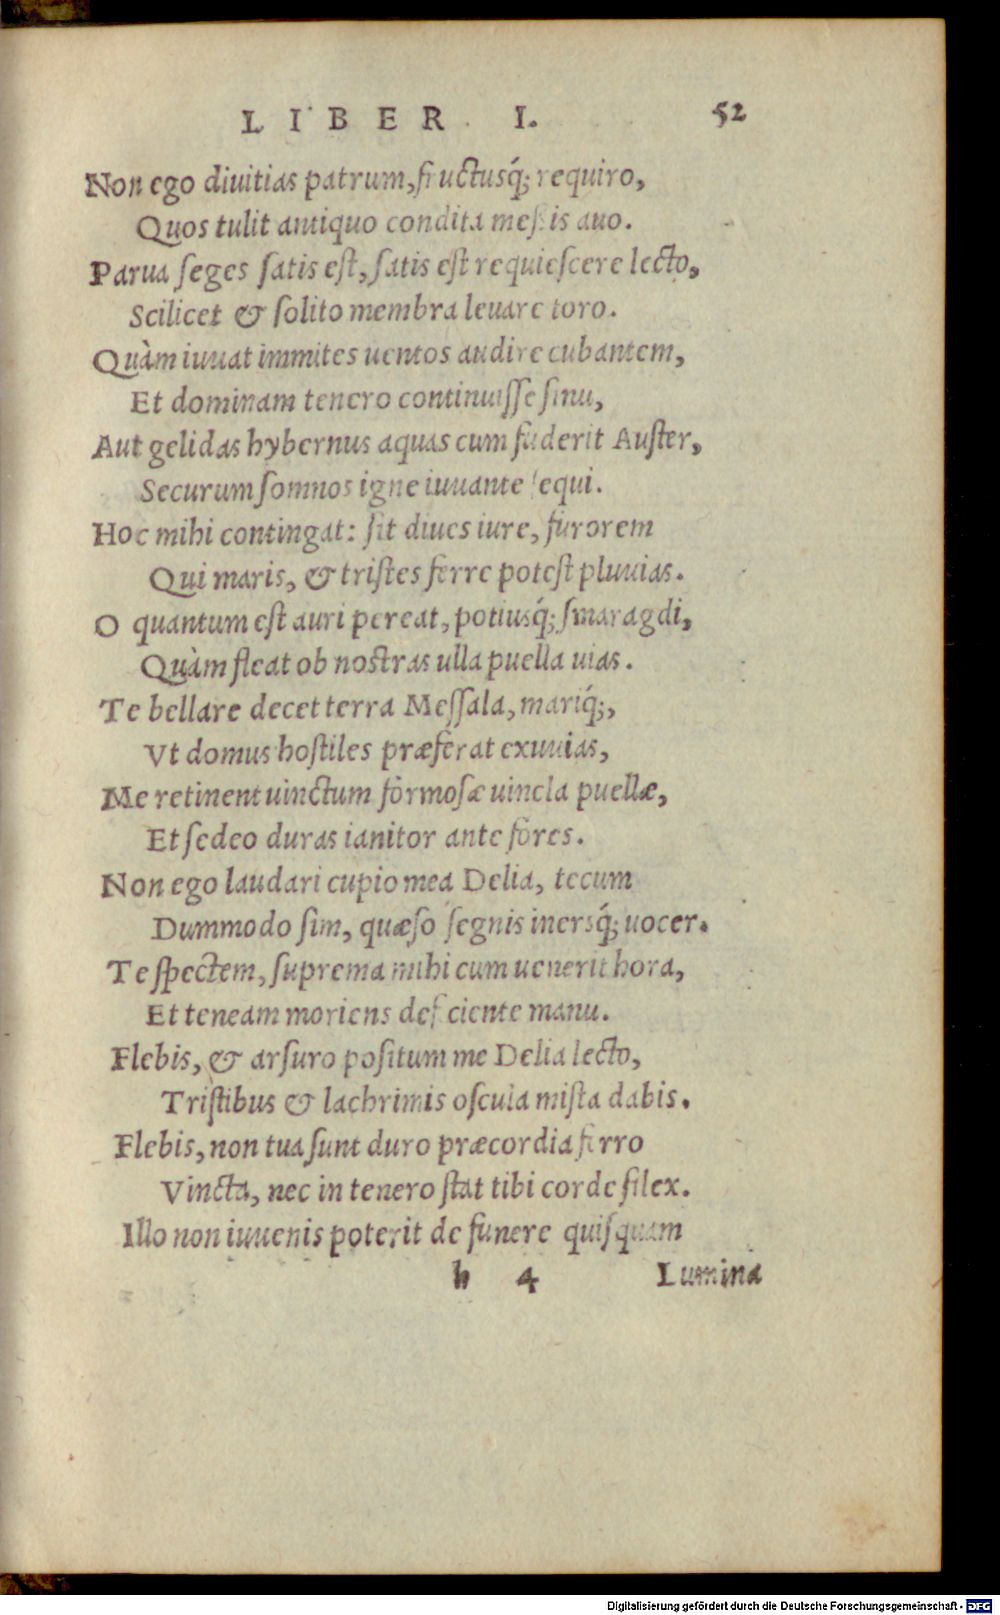 LIBER I. 52
Non ego diuitias patrum, fructusq́; requiro,
Quos tulit antiquo condita messis auo.
Parua seges satis est, satis est requiescere lecto,
Scilicet & solito membra leuare toro.
Quàm iuuat immites uentos audire cubantem,
Et dominam tenero continuisse sinu,
Aut gelidas hybernus aquas cum fuderit Auster,
Securum somnos igne iuuante sequi.
Hoc mihi contingat: sit diues iure, furorem
Qui maris, & tristes ferre potest pluuias.
O quantum est auri pereat, potiusq́; smaragdi,
Quàm fleat ob nostras ulla puella uias.
Te bellare decet terra Messala, mariq́;,
Vt domus hostiles præferat exuuias,
Me retinent uinctum formosæ uincla puellæ,
Et sedeo duras ianitor ante fores.
Non ego laudari cupio mea Delia, tecum
Dummodo sim, quæso segnis inersq́; uocer.
Te spectem, suprema mihi cum uenerit hora,
Et teneam moriens deficiente manu.
Flebis, & arsuro positum me Delia lecto,
Tristibus & lachrimis oscula mista dabis.
Flebis, non tua sunt duro præcordia ferro
Vincta, nec in tenero stat tibi corde silex.
Illo non iuuenis poterit de funere quisquam
h 4 Lumina
Digitalisierung gefördert durch die Deutsche Forschungsgemeinschaft - DFG